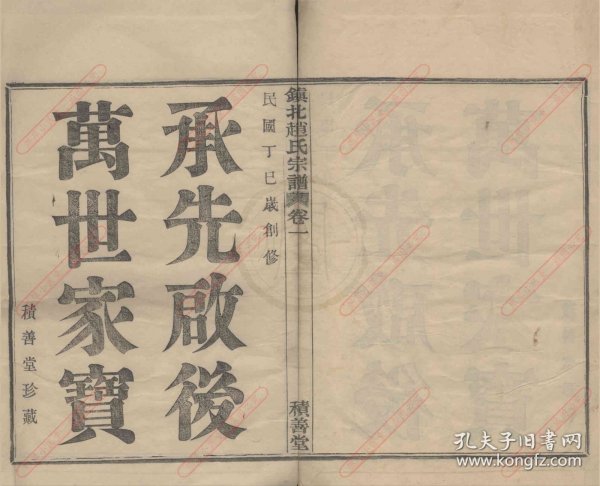 鎮北趙氏宗譜
卷一
積善堂
民國丁巳歲創修
承先啟後
萬世家寶
積善堂珍藏
孔夫子旧书网
www.kongfz.com